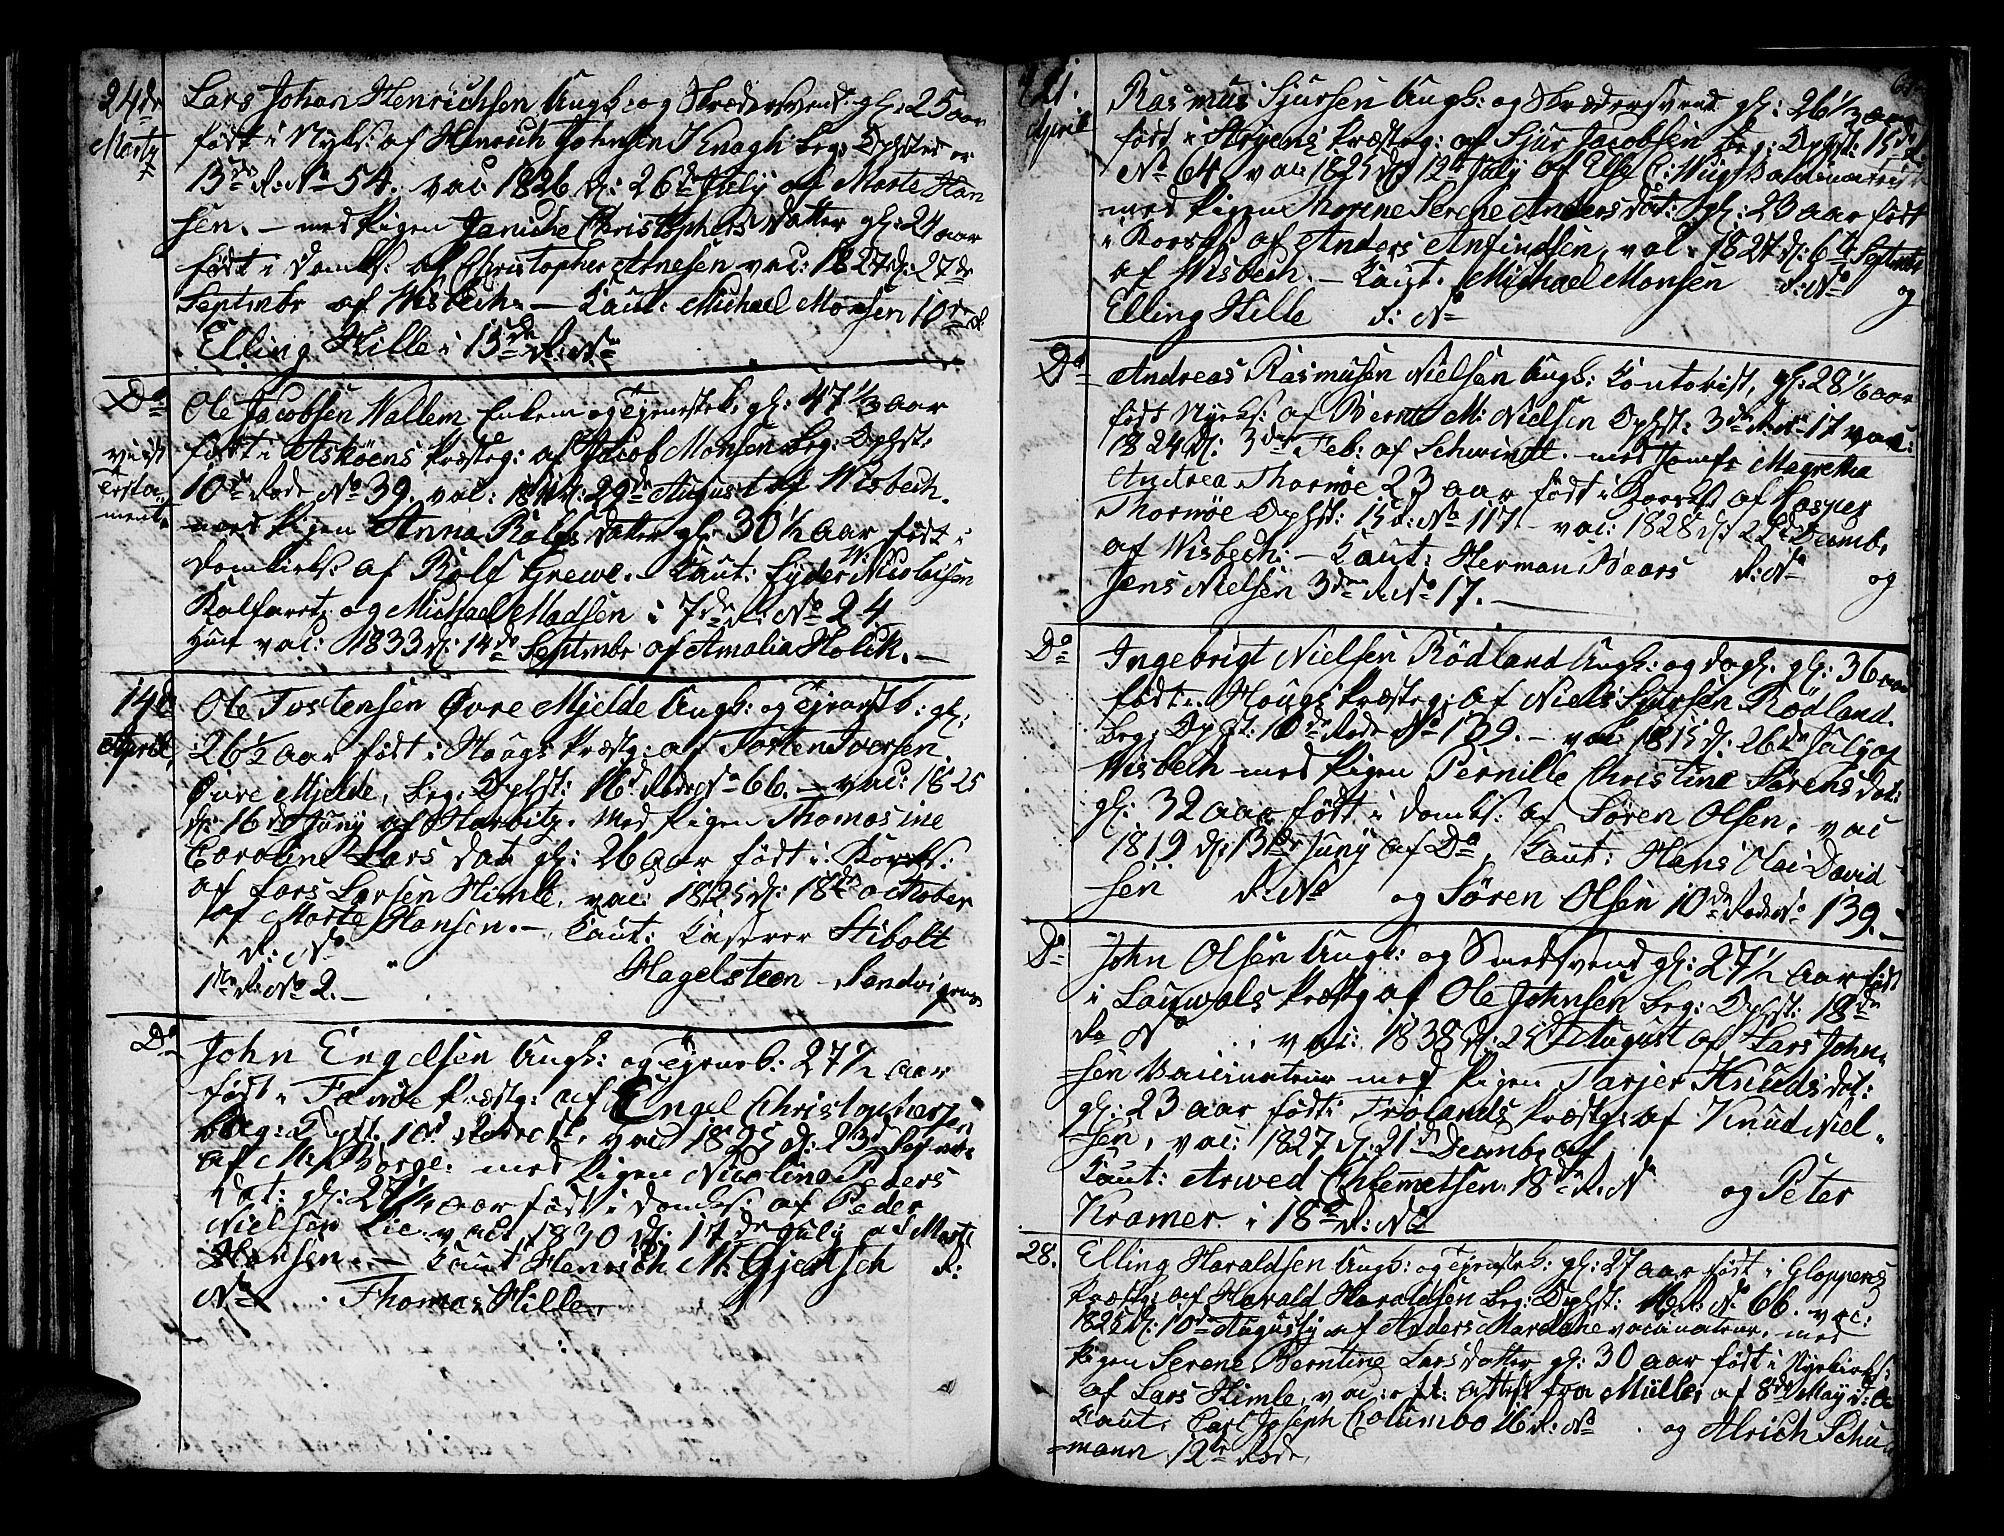 24de Martz
Lars Johan Henrichsen Ungk: og Skrædersvend gl: 25 aar
født i Nyks: af Henrich Johnsen Knagh beg: Ophsted er
13de R: No 54. vac: 1826 d: 26de July af Marte Han
sen. – med Pigen Janiche Christophers datter gl: 24 aar
født i Domks: af Christopher Arnesen vac: 1827 d: 27de
Septmbr af Wisbech. – Caut: Michael Monsen 10de R.
Elling Hille i 15de R: No
Do
Ole Jacobsen Wallem Enkem og Tjenestek: gl: 47 1/3 aar
født i Askøens Præsteg: af Jacob Monsen beg: Ophst:
viist Testament.
10de Rode No 39. vac: d: 29de August af Wisbech.
med Pigen Anna Rolfs datter gl: 30 1/2 aar født i
Domkirks: af Rolf Grewe. – Caut: Eyder Nicolaisen
Kalfaret. og Michael Madsen i 7de R: No 24
Hun vac: 1833 d: 14de Septmbr af Amalia Holck. –
14de April
Ole Tostensen Øvre Mjelde Ungk: og Tjenestk: gl:
26 1/2 aar født i Hougs Præstg: af Tosten Iversen
Øvre Mjelde, beg: Ophst: 16d Rode No 66. – vac: 1825
d: 16de Juny af Harbitz. Med Pigen Thomasine
Caroline Lars dat: gl: 26 aar født i Korsks:
af Lars Larsen Himle, vac: 1825 d: 18de October
af Marte Hansen. – Caut: Casserer Stibolt
R: No
1ste R: No 2. – Hagelsteen Sandvigen
Do
John Engelsen Ungk: og Tjenestk: 27 1/2 aar
født i Fanøe Præstg: af Engel Christophersen
beg: Ophst: 10d Rode vac: 1825 d: 23d Septmbr
af M. Børge. med Pigen Nicoline Peders
dat: gl: 27 1/2 aar født i Domks: af Peder
Nielsen Lie. vac: 1830 d: 17de July af Marte
Hansen. – Caut Henrich M. Gjertsch R:
No . Thomas Hille
21. April
Rasmus Sjursen Ungk: og Skrædersvend gl: 26 1/3 aar
født i Præsteg: af Sjur Jacobsen beg: Ophst: 15de
No 64 vac: 1825 d: 12te July af Else C:
med Pigen Thorine Serene Anders dat: gl: 23 aar født
i Korsks: af Anders Anfindsen, vac. 1827 d: 6te Septmbr
af Wisbech. – Caut. Michael Monsen R: No og
Elling Hille R: No
Do
Andreas Rasmusen Nielsen Ungk: Contorist, gl: 28 1/6 aar
født Nyeks: af Bernt M: Nielsen Ophst: 3de R: No 17 vac:
1824 d: 3die Feb: af Schwindt. med Jomfr Magretha
Andrea Thormøe 23 aar født i Korsks af Kasper
Thormøe Ophst: 15 R: No 117 – vac: 1828 d: 22de Decemb.
af Wisbech: – Caut: Herman Baars R: No og
Jens Nielsen 3die R: No 17. –
Do
Ingebrigt Nielsen Rödland Ungk: og dagl. gl: 36 aar
født i Hougs Præsteg: af Niels Sjursen Rödland.
beg: Ophst: 10de Rode No 139. – vac 1815 d: 26de July af
Wisbech med Pigen Pernille Christine Sørens dat:
gl: 32 aar født i Domks: af Søren Olsen, vac
1819 d: 13de Juny af Do, Caut: Hans Clai David
sen R: No og Søren Olsen 10de Rode No 139. –
Do
John Olsen Ungk: og Smedsvend gl: 27 1/2 aar født
i Præstg af Ole Johnsen beg: Ophst: 18de
Ro No vac: 1838 d: 25 August af Lars John-
sen Vaccinateur med Pigen Tarjer Knuds dat:
gl: 23 aar født i Præstg: af Knud Niel-
sen, vac: 1827 d: 21d Decemb: af
Caut: Arwed Chlemetsen 18de R: No og Peter
Kramer i 18de R: No
28.
Elling Haraldsen Ungk: og Tjenestk: gl: 27 aar født i Gloppens
Præstg: af Harald Haraldsen beg: Ophst: 16 R: No 66. vac:
1825 d: 10de Augusty af Anders Mardahl vaccinateur, med
Pigen Serene Berntine Lars datter gl: 30 aar født i Nyekirks:
af Lars Himle, vac: eft: Attest fra Müller af 8de May
Caut. Carl Joseph Columbo 16 R: No . og Alrich Schu-
mann 12te Rode